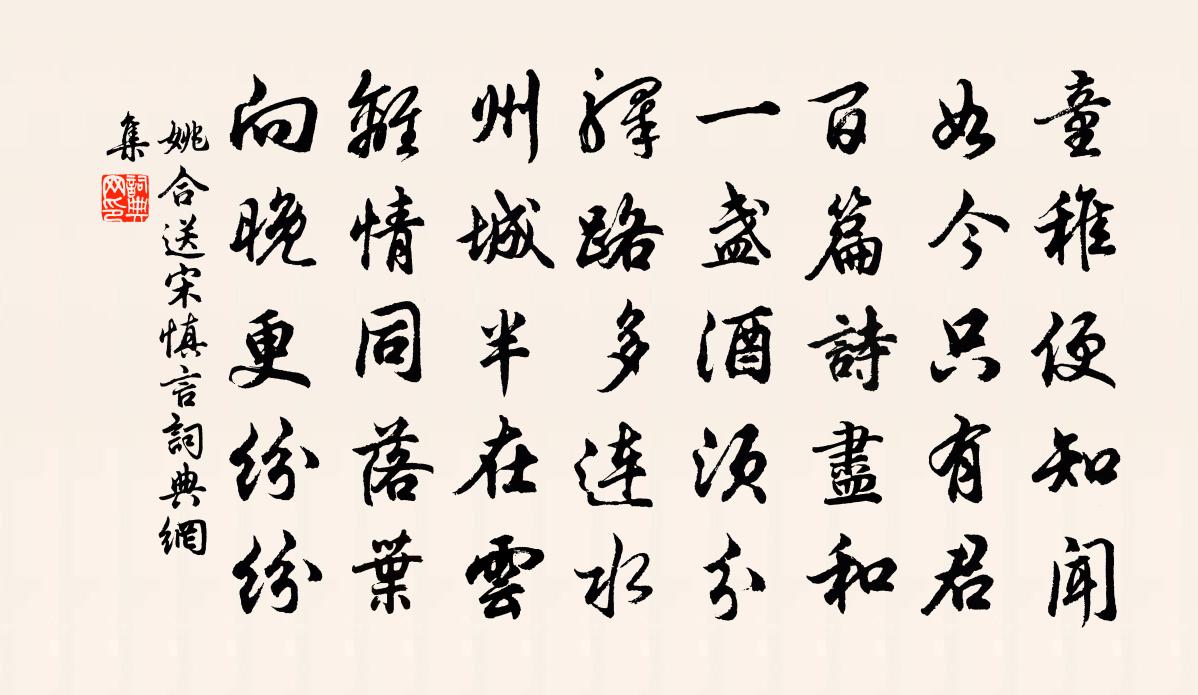 童稚便知聞
如今只有君
百篇詩盡和
一盞酒須分
驛路多連水
州城半在雲
離情同落葉
向晚更紛紛
姚合送宋慎言詞典網
集
詞典
网印